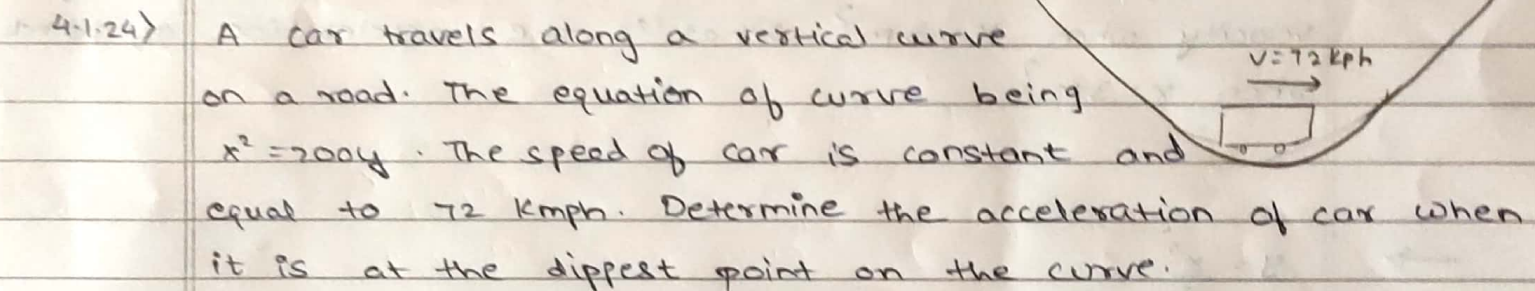 4.1.24) A car travels along a vertical curve
V=72 kph
on a road. The equation of curve being
x² = 200y. The speed of car is constant and
equal to 72 Kmph. Determine the acceleration of car when
it is at the dippest point on the curve.